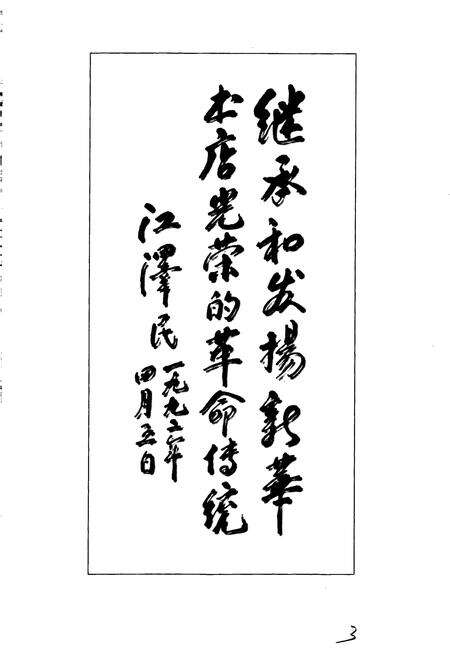 继承和发揚新華
书店光荣的革命傳统
江澤民
一九九二年
四月五日
3